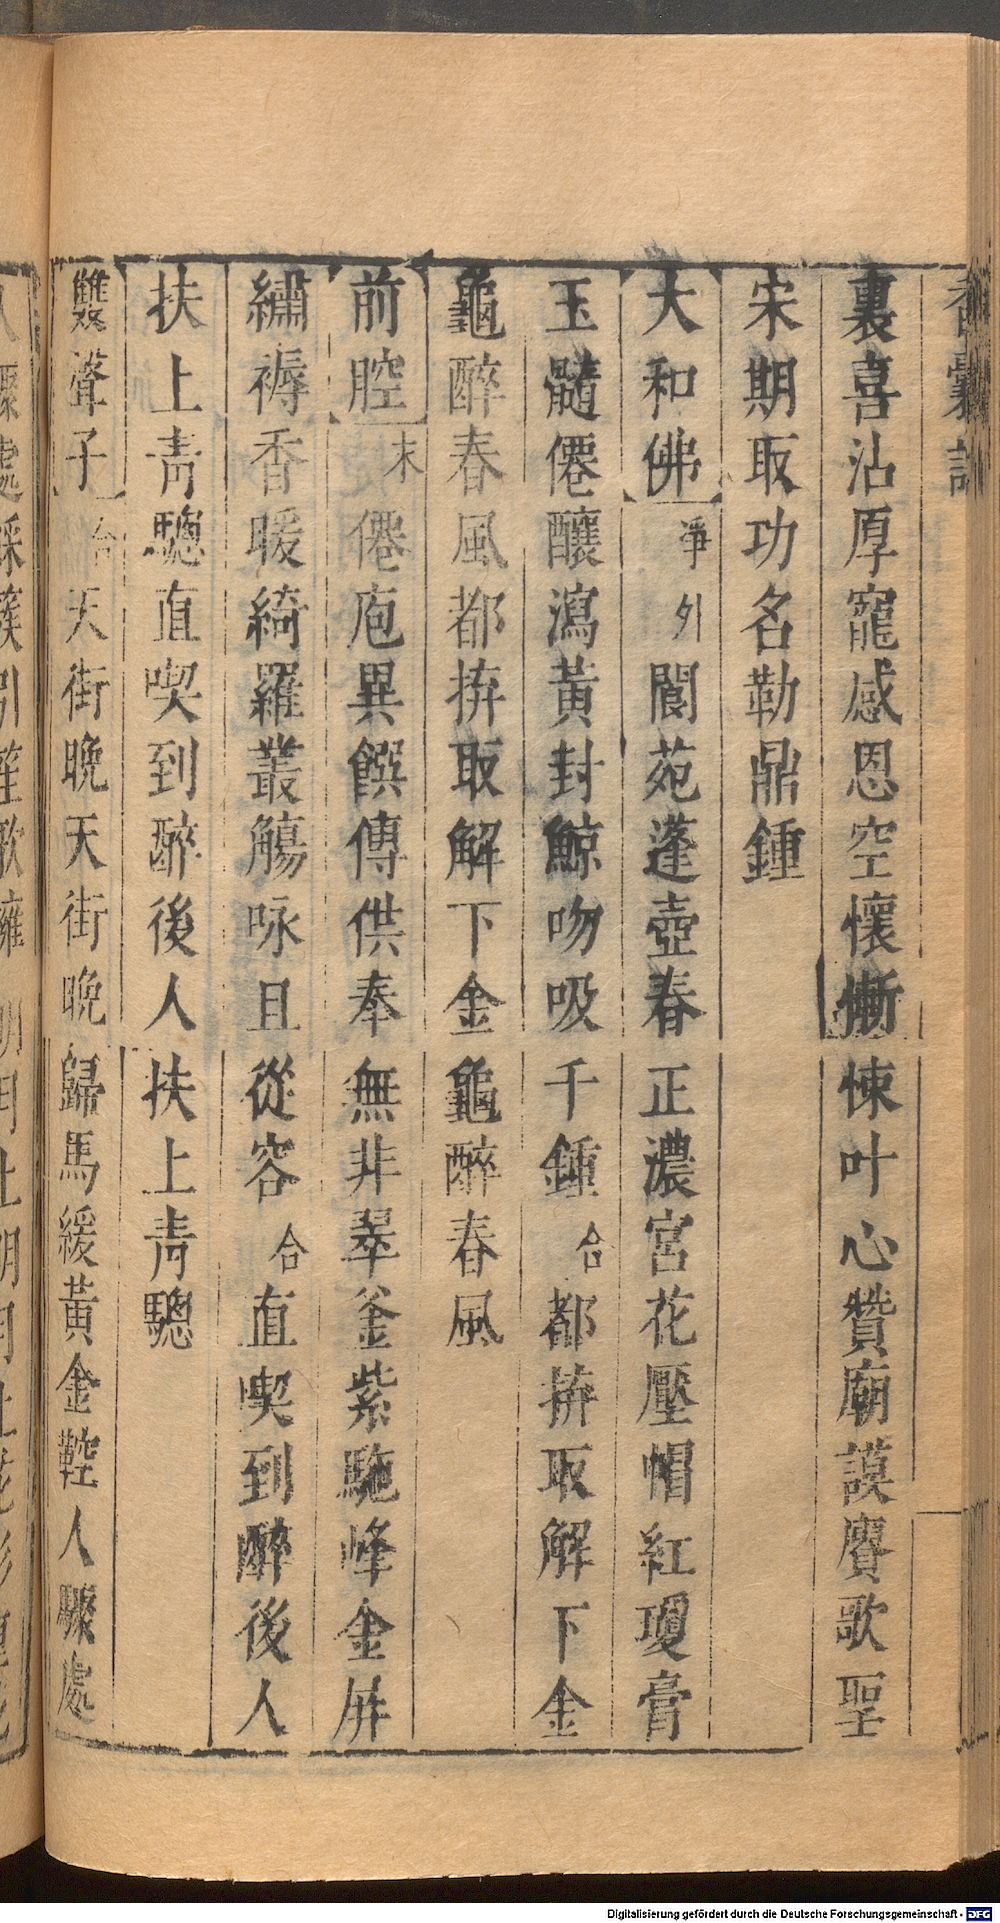 香囊記
裏喜沾厚寵感恩空懷慚悚叶心贊廟謨賡歌聖
宋期取功名勒鼎鍾
大和佛 淨 外 閬苑蓬壺春正濃宮花壓帽紅瓊膏
玉髓僊釀瀉黃封鯨吻吸千鍾 合 都拚取解下金
龜醉春風都拚取解下金龜醉春風
前腔 末 僊庖異饌傳供奉無非翠釜紫駞峰金屏
繡褥香暖綺羅叢觴咏且從容 合 直喫到醉後人
扶上靑驄直喫到醉後人扶上靑驄
雙聲子 合 天街晚天街晚歸馬緩黃金鞚人驟處
Digitalisierung gefördert durch die Deutsche Forschungsgemeinschaft - DFG